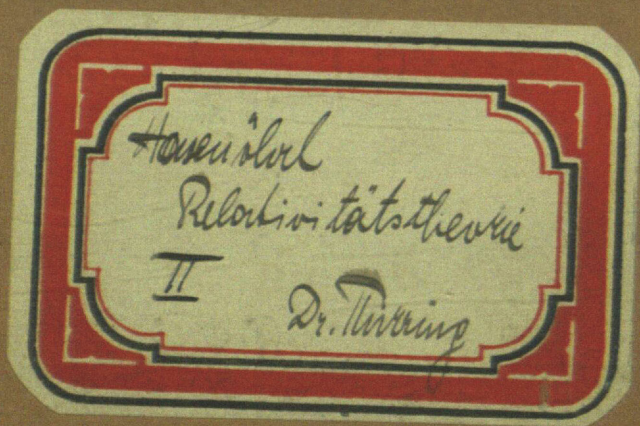 Hasenöhrl
Relativitätstheorie
II
Dr. Thirring